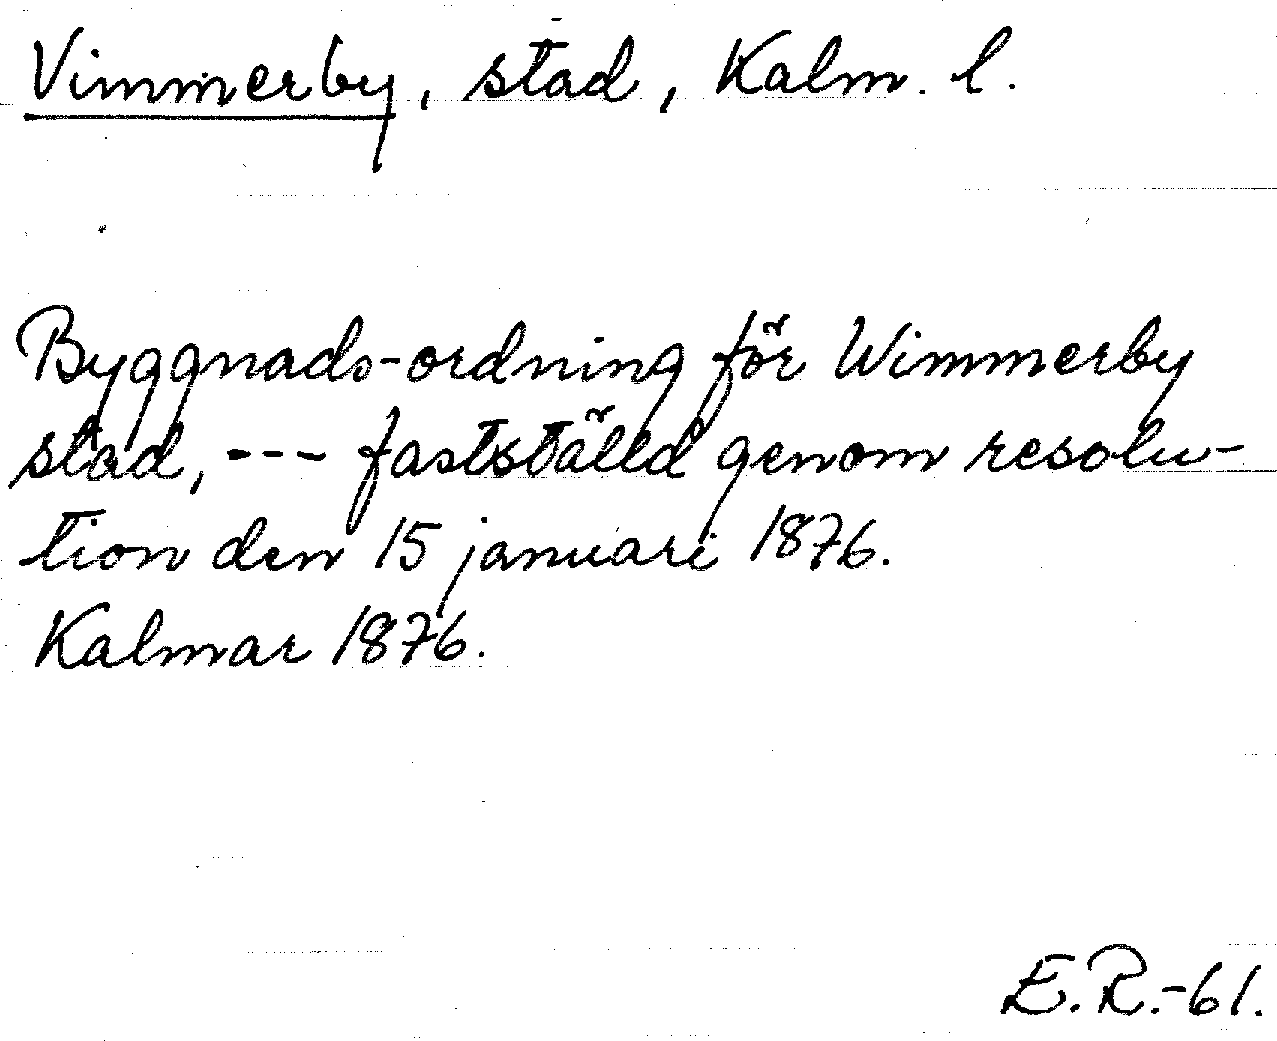 Vimmerby, stad, Kalm. l.
Byggnads-ordning för Wimmerby
stad, --- fastställd genom resolu-
tion den 15 januari 1876.
Kalmar 1876.
E.R.-61.